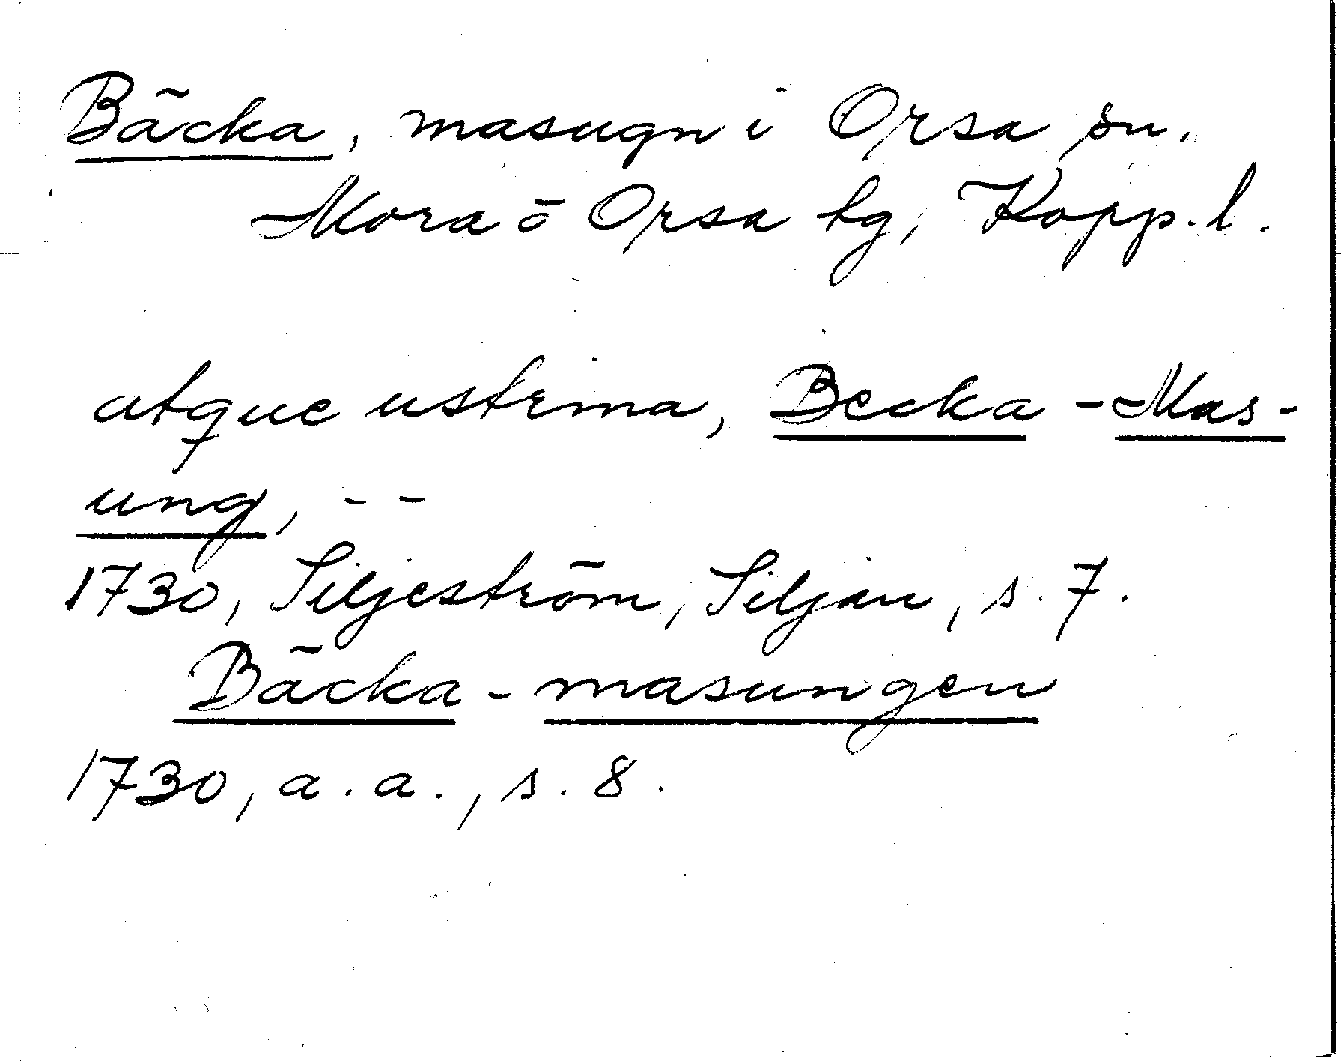 Bäcka, masugn i Orsa sn,
Mora o Orsa tg, Kopp. l.
atque ustrina, Becka-Mas-
ung, - -
1730, Siljeström, Siljan, s. 7.
Bäcka-masungen
1730, a. a., s. 8.